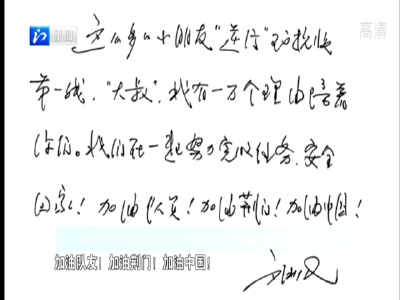 新闻
高清
这么多小朋友“逆行”到抗疫
第一线，“大叔”，我有一万个理由陪着
你们。我们在一起努力完成任务，安全
回家！加油队友！加油荆门！加油中国！
加油队友！加油荆门！加油中国！